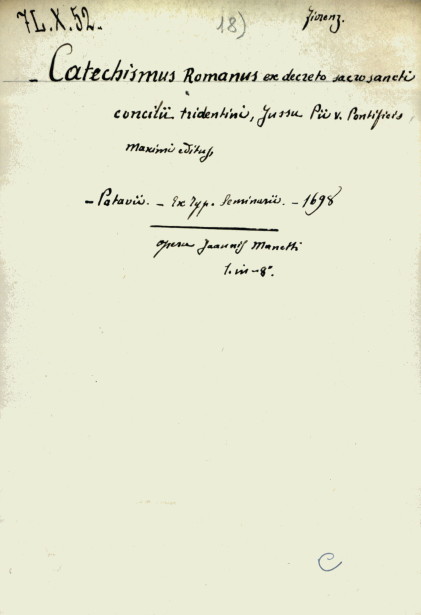 7L.X.52.
18)
Fiorenz.
- Catechismus Romanus ex decreto sacrosancti
concilii tridentini, Jussu Pii V. Pontificis
maximi editus,
- Patavii. - Ex Typ. Seminarii. - 1698
opera Joannis Manetti
1. in-8°.
C